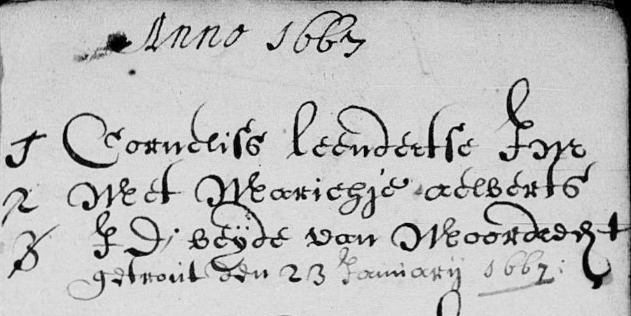 Anno 1667
1 Corneliss leendertse JM
2 Met Mariechje aelberts
3 J D, beÿde van Moordrecht
getrout den 23 Januarij 1667: